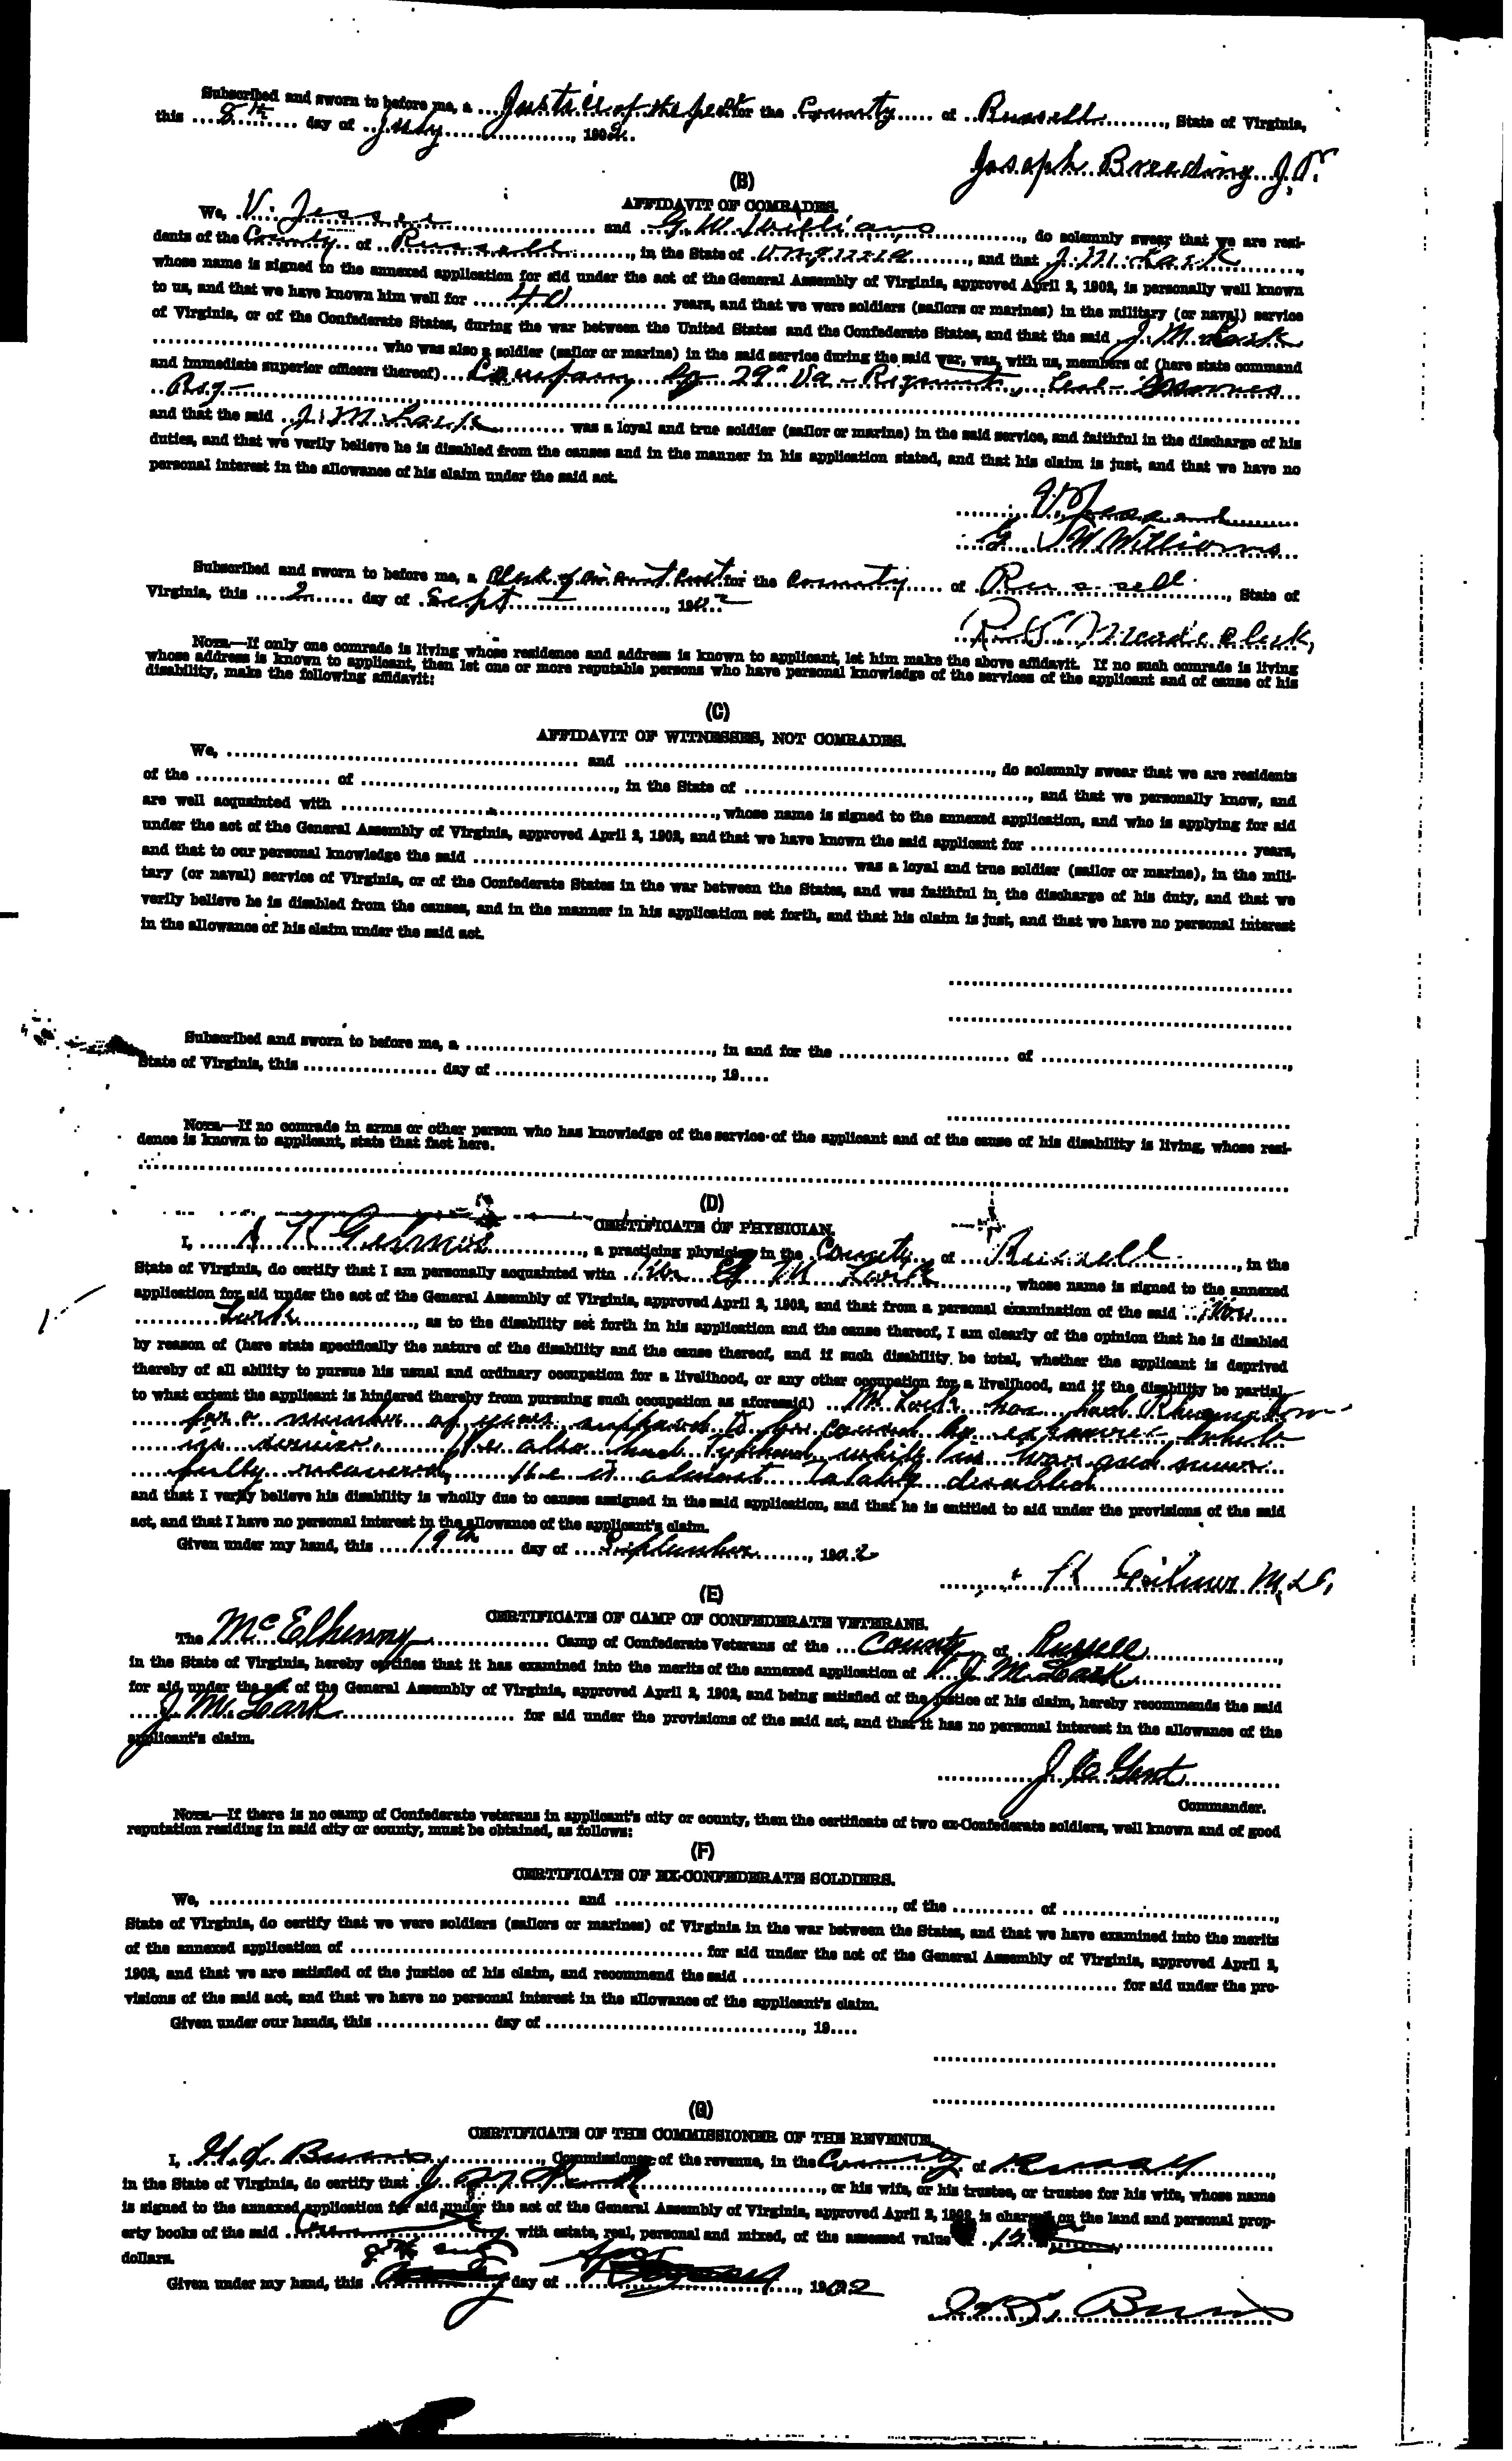 Subscribed and sworn to before me, a ....Justice of the peace for the ..County...... of ..Russell............, State of Virginia,
this ....8th........ day of ..July.................., 1902..
Joseph Breeding J.P.
(B)
AFFIDAVIT OF COMRADES.
We, .V. Jessee.................... and ..G. W. Williams..............., do solemnly swear that we are resi-
dents of the County... of ..Russell............, in the State of .Virginia........., and that J. M. Lark..........,
whose name is signed to the annexed application for aid under the act of the General Assembly of Virginia, approved April 2, 1902, is personally well known
to us, and that we have known him well for .....40................ years, and that we were soldiers (sailors or marines) in the military (or naval) service
of Virginia, or of the Confederate States, during the war between the United States and the Confederate States, and that the said J. M. Lark
.............................. who was also a soldier (sailor or marine) in the said service during the said war, was, with us, members of (here state command
and immediate superior officers thereof)..Company 29" Va Regiment,
and that the said ..J. M. Lark.......... was a loyal and true soldier (sailor or marine) in the said service, and faithful in the discharge of his
duties, and that we verily believe he is disabled from the causes and in the manner in his application stated, and that his claim is just, and that we have no
personal interest in the allowance of his claim under the said act.
V. Jessee
G W Williams
Subscribed and sworn to before me, a Clerk of circuit Court for the County...... of ..Russell........, State of
Virginia, this ....2...... day of Sept..................., 1902
Clerk,
NOTE—If only one comrade is living whose residence and address is known to applicant, let him make the above affidavit. If no such comrade is living
whose address is known to applicant, then let one or more reputable persons who have personal knowledge of the services of the applicant and of cause of his
disability, make the following affidavit:
(C)
AFFIDAVIT OF WITNESSES, NOT COMRADES.
We, .................................................. and ..................................................., do solemnly swear that we are residents
of the .................. of ..................................., in the State of ......................................, and that we personally know, and
are well acquainted with ..................................................., whose name is signed to the annexed application, and who is applying for aid
under the act of the General Assembly of Virginia, approved April 2, 1902, and that we have known the said applicant for .............................. years,
and that to our personal knowledge the said ................................................... was a loyal and true soldier (sailor or marine), in the mili-
tary (or naval) service of Virginia, or of the Confederate States in the war between the States, and was faithful in the discharge of his duty, and that we
verily believe he is disabled from the causes, and in the manner in his application set forth, and that his claim is just, and that we have no personal interest
in the allowance of his claim under the said act.
Subscribed and sworn to before me, a ..................................., in and for the ....................... of ...................................,
State of Virginia, this .................. day of .............................., 19....
NOTE—If no comrade in arms or other person who has knowledge of the service of the applicant and of the cause of his disability is living, whose resi-
dence is known to applicant, state that fact here.
(D)
CERTIFICATE OF PHYSICIAN.
I, ..............................., a practicing physician in the County... of ...Russell............, in the
State of Virginia, do certify that I am personally acquainted with ..Mr M Lark.........., whose name is signed to the annexed
application for aid under the act of the General Assembly of Virginia, approved April 2, 1902, and that from a personal examination of the said ..Mr.....
..........Lark.............., as to the disability set forth in his application and the cause thereof, I am clearly of the opinion that he is disabled
by reason of (here state specifically the nature of the disability and the cause thereof, and if such disability be total, whether the applicant is deprived
thereby of all ability to pursue his usual and ordinary occupation for a livelihood, or any other occupation for a livelihood, and if the disability be partial,
to what extent the applicant is hindered thereby from pursuing such occupation as aforesaid) ..Mr Lark has had Rheumatism
for a number of years supposed to be caused by exposure while
in service. He also had Typhoid while in war and never
fully recovered, He is almost totally disabled
and that I verily believe his disability is wholly due to causes assigned in the said application, and that he is entitled to aid under the provisions of the said
act, and that I have no personal interest in the allowance of the applicant's claim.
Given under my hand, this ....19th........ day of ..September......., 1902
Gilmer M.D.
(E)
CERTIFICATE OF CAMP OF CONFEDERATE VETERANS.
The McElhenny.................... Camp of Confederate Veterans of the ...County... of Russell...............,
in the State of Virginia, hereby certifies that it has examined into the merits of the annexed application of J. M. Lark
for aid under the act of the General Assembly of Virginia, approved April 2, 1902, and being satisfied of the justice of his claim, hereby recommends the said
....J. M. Lark......................... for aid under the provisions of the said act, and that it has no personal interest in the allowance of the
applicant's claim.
J C Gent
Commander.
NOTE—If there is no camp of Confederate veterans in applicant's city or county, then the certificate of two ex-Confederate soldiers, well known and of good
reputation residing in said city or county, must be obtained, as follows:
(F)
CERTIFICATE OF EX-CONFEDERATE SOLDIERS.
We, .................................................. and ......................................., of the ........... of ...............................,
State of Virginia, do certify that we were soldiers (sailors or marines) of Virginia in the war between the States, and that we have examined into the merits
of the annexed application of .................................................. for aid under the act of the General Assembly of Virginia, approved April 2,
1902, and that we are satisfied of the justice of his claim, and recommend the said .................................................... for aid under the pro-
visions of the said act, and that we have no personal interest in the allowance of the applicant's claim.
Given under our hands, this ............... day of ..................................., 19....
(G)
CERTIFICATE OF THE COMMISSIONER OF THE REVENUE.
I, ..Burns..............., Commissioner of the revenue, in the County... of Russell............,
in the State of Virginia, do certify that J M Lark........................., or his wife, or his trustee, or trustee for his wife, whose name
is signed to the annexed application for aid under the act of the General Assembly of Virginia, approved April 2, 1902, is charged on the land and personal prop-
erty books of the said .............................., with estate, real, personal and mixed, of the assessed value of
dollars.
Given under my hand, this .................. day of .............................., 1902
Burns